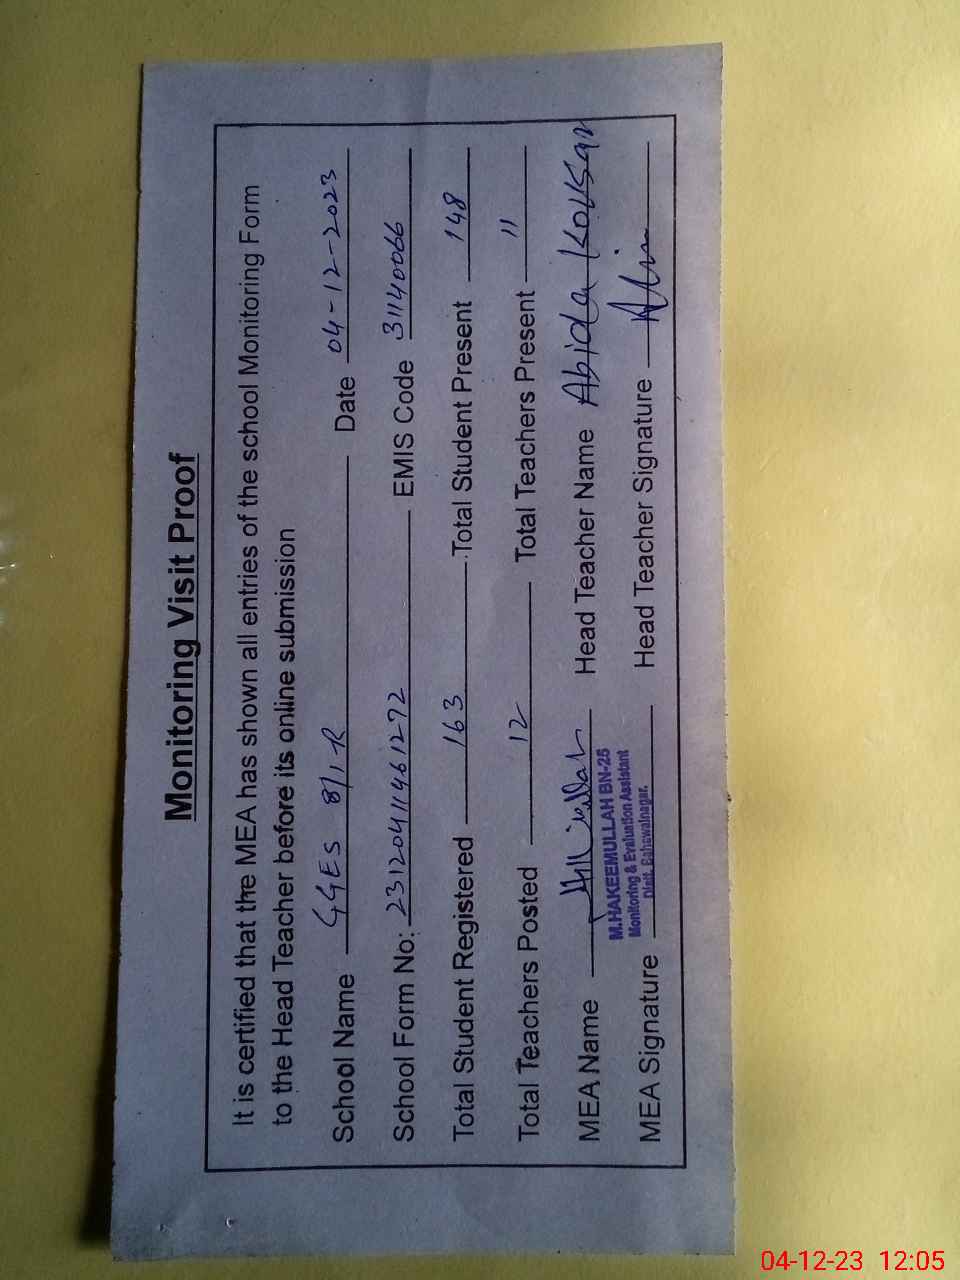 Monitoring Visit Proof
It is certified that the MEA has shown all entries of the school Monitoring Form
to the Head Teacher before its online submission
School Name GGES 8/1-R Date 04-12-2023
School Form No: 23120411461272 EMIS Code 31140066
Total Student Registered 163 Total Student Present 148
Total Teachers Posted 12 Total Teachers Present 11
MEA Name Head Teacher Name Abida Kousar
M.HAKEEMULLAH BN-25
Monitoring & Evaluation Assistant
Distt. Bahawalnagar.
MEA Signature Head Teacher Signature
04-12-23 12:05